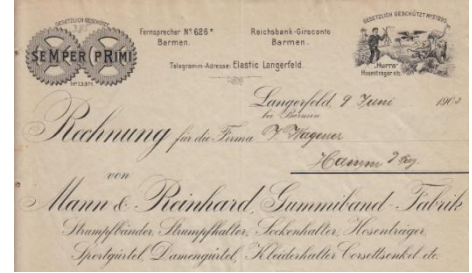 GESETZLICH GESCHÜTZT
SEMPER PRIMI
Fernsprecher Nº 626*
Barmen.
Reichsbank-Giroconto
Barmen.
Telegramm-Adresse: Elastic Langerfeld.
GESETZLICH GESCHÜTZT
„Hurra“
Hosenträger etc.
Langerfeld, 9 Juni 190
bei Barmen
Rechnung für die Firma J. Wagener
Hamm
von
Mann & Reinhard, Gummiband-Fabrik
Strumpfbänder, Strumpfhalter, Sockenhalter, Hosenträger,
Sportgürtel, Damengürtel, Kleiderhalter, Corsettsenkel etc.